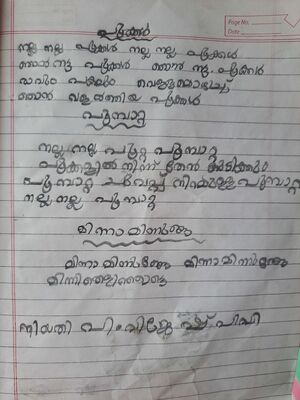 പൂക്കൾ
നല്ല നല്ല പൂക്കൾ നല്ല നല്ല പൂക്കൾ
ഞാൻ നട്ട പൂക്കൾ ഞാൻ നട്ട പൂക്കൾ
രാവും പകലും വെള്ളമൊഴിച്ചു
ഞാൻ വളർത്തിയ പൂക്കൾ
പൂമ്പാറ്റ
നല്ല നല്ല പൂമ്പാറ്റ
പൂക്കളിൽ നിന്ന് തേൻ കുടിക്കും
പൂമ്പാറ്റ ചുവപ്പ് നിറമുള്ള പൂമ്പാറ്റ
നല്ല നല്ല പൂമ്പാറ്റ
മിന്നാമിനുങ്ങേ
മിന്നാമിനുങ്ങേ മിന്നാമിനുങ്ങേ
Page No.
Date